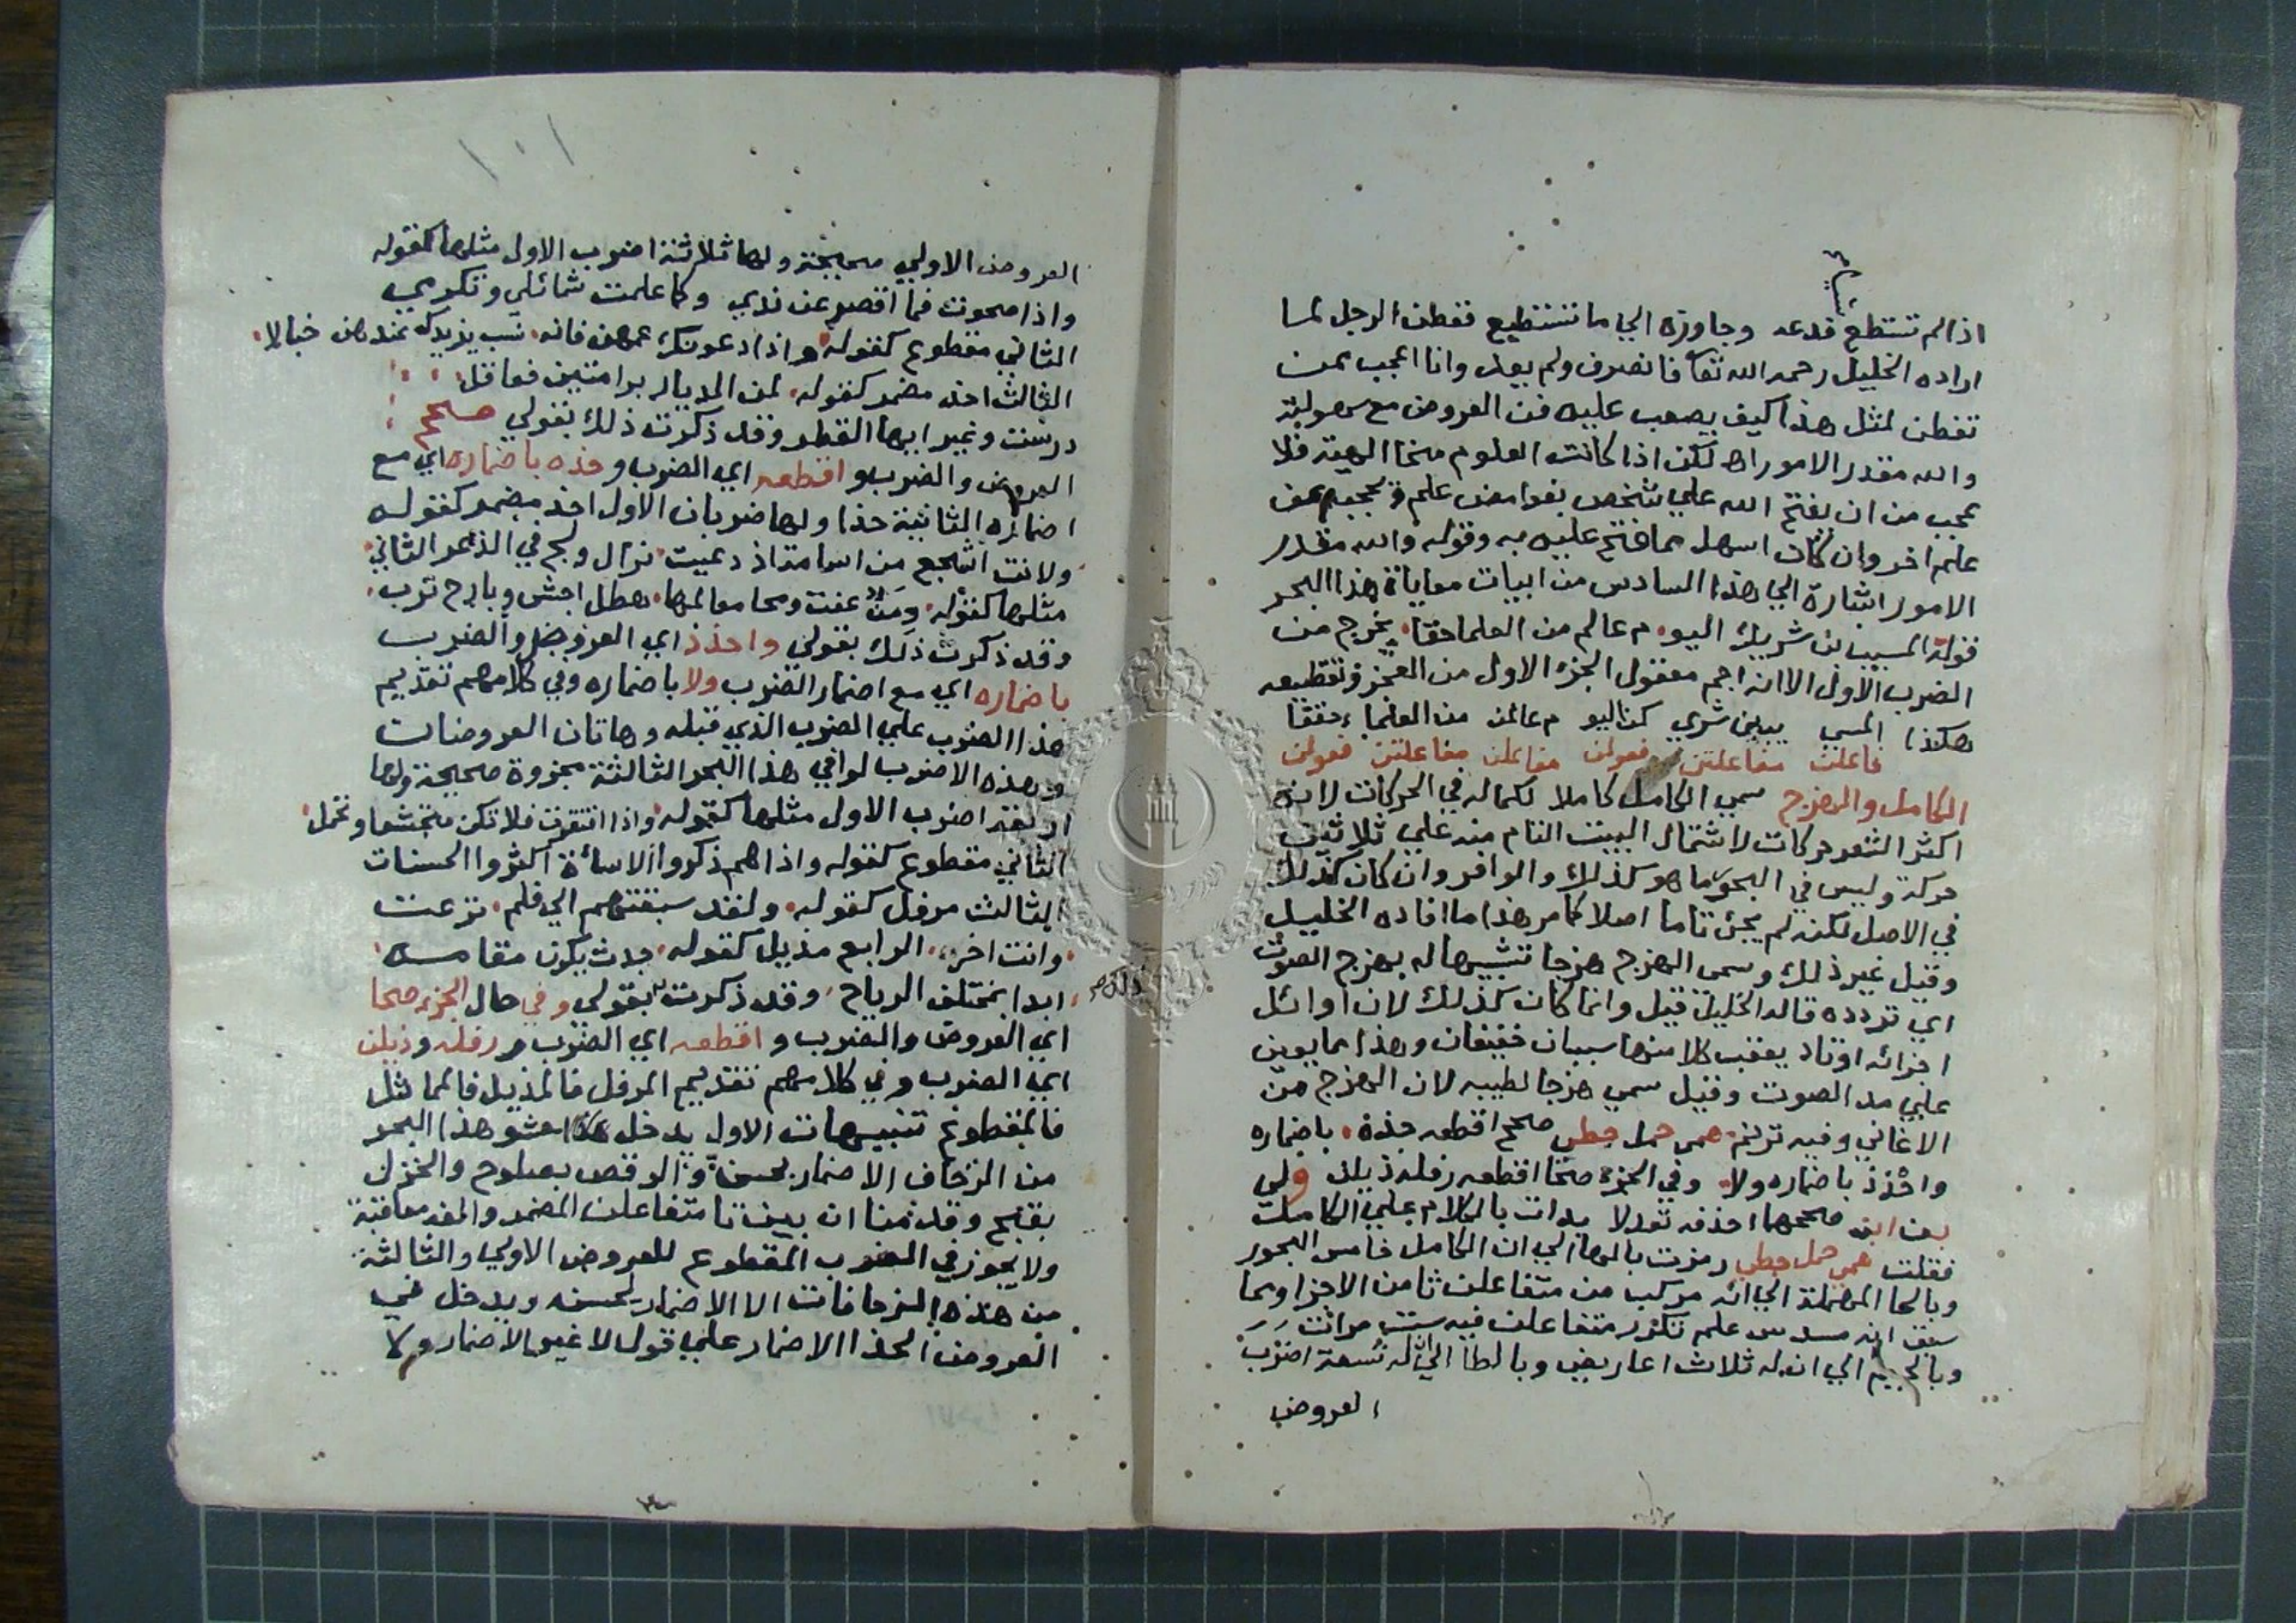 شيئا
اذا لم تستطع فدعه وجاوزه الي ما تستطيع ففطن الرجل لما
اراده الخليل رحمه الله تعا فانصرف ولم يعد وانا اعجب ممن
تفطن لمثل هذا كيف يصعب عليه فن العروض مع سهولته
والله مقدر الامور اه لكن اذا كانت العلوم منحا الهية فلا
عجب من ان يفتح الله علي شخص بغوامض علم وتحجبه عن
علم اخر وان كان اسهل مما فتح عليه به وقوله والله مقدر
الامور اشارة الي هذا السادس من ابيات معاياة هذا البحر
قوله المسيب بن شريك اليو م عالم من العلما حقا يخرج من
الضرب الاول الا انه اجم معقول الجزء الاول من العجز وتقطيعه
هكذا المسي يبين شري كن اليو م عالمن من العلما ء حققا
فاعلت مفاعلتن فعولن مفاعلن مفاعلتن فعولن
الكامل والهزج سمي الكامل كاملا لكماله في الحركات لانه
اكثر الشعر حركات لاشتمال البيت التام منه علي ثلاثين
حركة وليس في البحور ما هو كذلك والوافر وان كان كذلك
في الاصل لكنه لم يجئ تاما اصلا كما مر هذا ما افاده الخليل
وقيل غير ذلك وسمي الهزج هزجا تشبيها له بهزج الصوت
اي تردده قاله الخليل قيل وانما كان كذلك لان اوائل
اجزائه اوتاد يعقب كلا منها سببان خفيفان وهذا مما يعين
علي مد الصوت وقيل سمي هزجا لطيبه لان الهزج من
الاغاني وفيه ترنم همي حمل جطي صحح اقطعه حذه باضماره
واحذذ باضماره ولا وفي الجزء صحا اقطعه رفله ذيلن ولي
بعن ابن صححها احذفه تعدلا بدات بالكلام علي الكامل
فقلت همي حمل جطي رمزت بالها الي ان الكامل خامس البحور
وبالحا المهملة الي انه مركب من متفاعلن ثامن الاجزا ومما
سبق انه مسدس علم تكرر متفاعلن فيه ست مرات
وبالجيم الي ان له ثلاث اعاريض وبالطا الي ان له تسعة اضرب
العروض
١٠١
العروض الاولي صحيحة ولها ثلاثة اضرب الاول مثلها كقوله
واذا صحوت فما اقصر عن ندي وكما علمت شمائلي وتكرمي
الثاني مقطوع كقوله واذا دعونك عمهن فانه نسب يزيدك عندهن خبالا
الثالث احذ مضمر كقوله لمن الديار برامتين فعاقل
درست وغير ايها القطر وقد ذكرت ذلك بقولي صحح
العروض والضرب واقطعه اي الضرب وحذه باضماره اي مع
اضماره الثانية حذا ولها ضربان الاول احذ مضمر كقوله
ولانت اشجع من اسامة اذ دعيت نزال ولج في الذعر الثاني
مثلها كقوله دمن عفت ومحا معالمها هطل اجش وبارح ترب
وقد ذكرت ذلك بقولي واحذذ اي العروض والضرب
باضماره اي مع اضمار الضرب ولا باضماره وفي كلامهم تقديم
هذا الضرب علي الضرب الذي قبله وهاتان العروضات
وهذه الاضرب لوافي هذا البحر الثالثة مجزوة صحيحة ولها
اربعة اضرب الاول مثلها كقوله واذا افتقرت فلا تكن متجشعا وتجمل
الثاني مقطوع كقوله واذا هم ذكروا الاسائة اكثروا الحسنات
الثالث مرفل كقوله ولقد سبقتهم الي فلم نزعت
وانت اخر الرابع مذيل كقوله جدث يكون مقامه
ابدا بمختلف الرياح وقد ذكرت ذلك بقولي وفي حال الجزء صحا
اي العروض والضرب واقطعه اي الضرب ورفله وذيلن
اي الضرب وفي كلامهم تقديم المرفل فالمذيل فالمماثل
فالمقطوع تنبيهات الاول يدخل حشو هذا البحر
من الزحاف الاضمار بحسن والوقص بصلوح والخزل
بقبح وقد منا ان بين تا متفاعلن المضمر والفه معاقبة
ولا يجوز في الضرب المقطوع للعروض الاولي والثالثة
من هذه الزحافات الا الاضمار لحسنه ويدخل في
العروض الحذا الاضمار علي قول لا غير الاضمار ولا